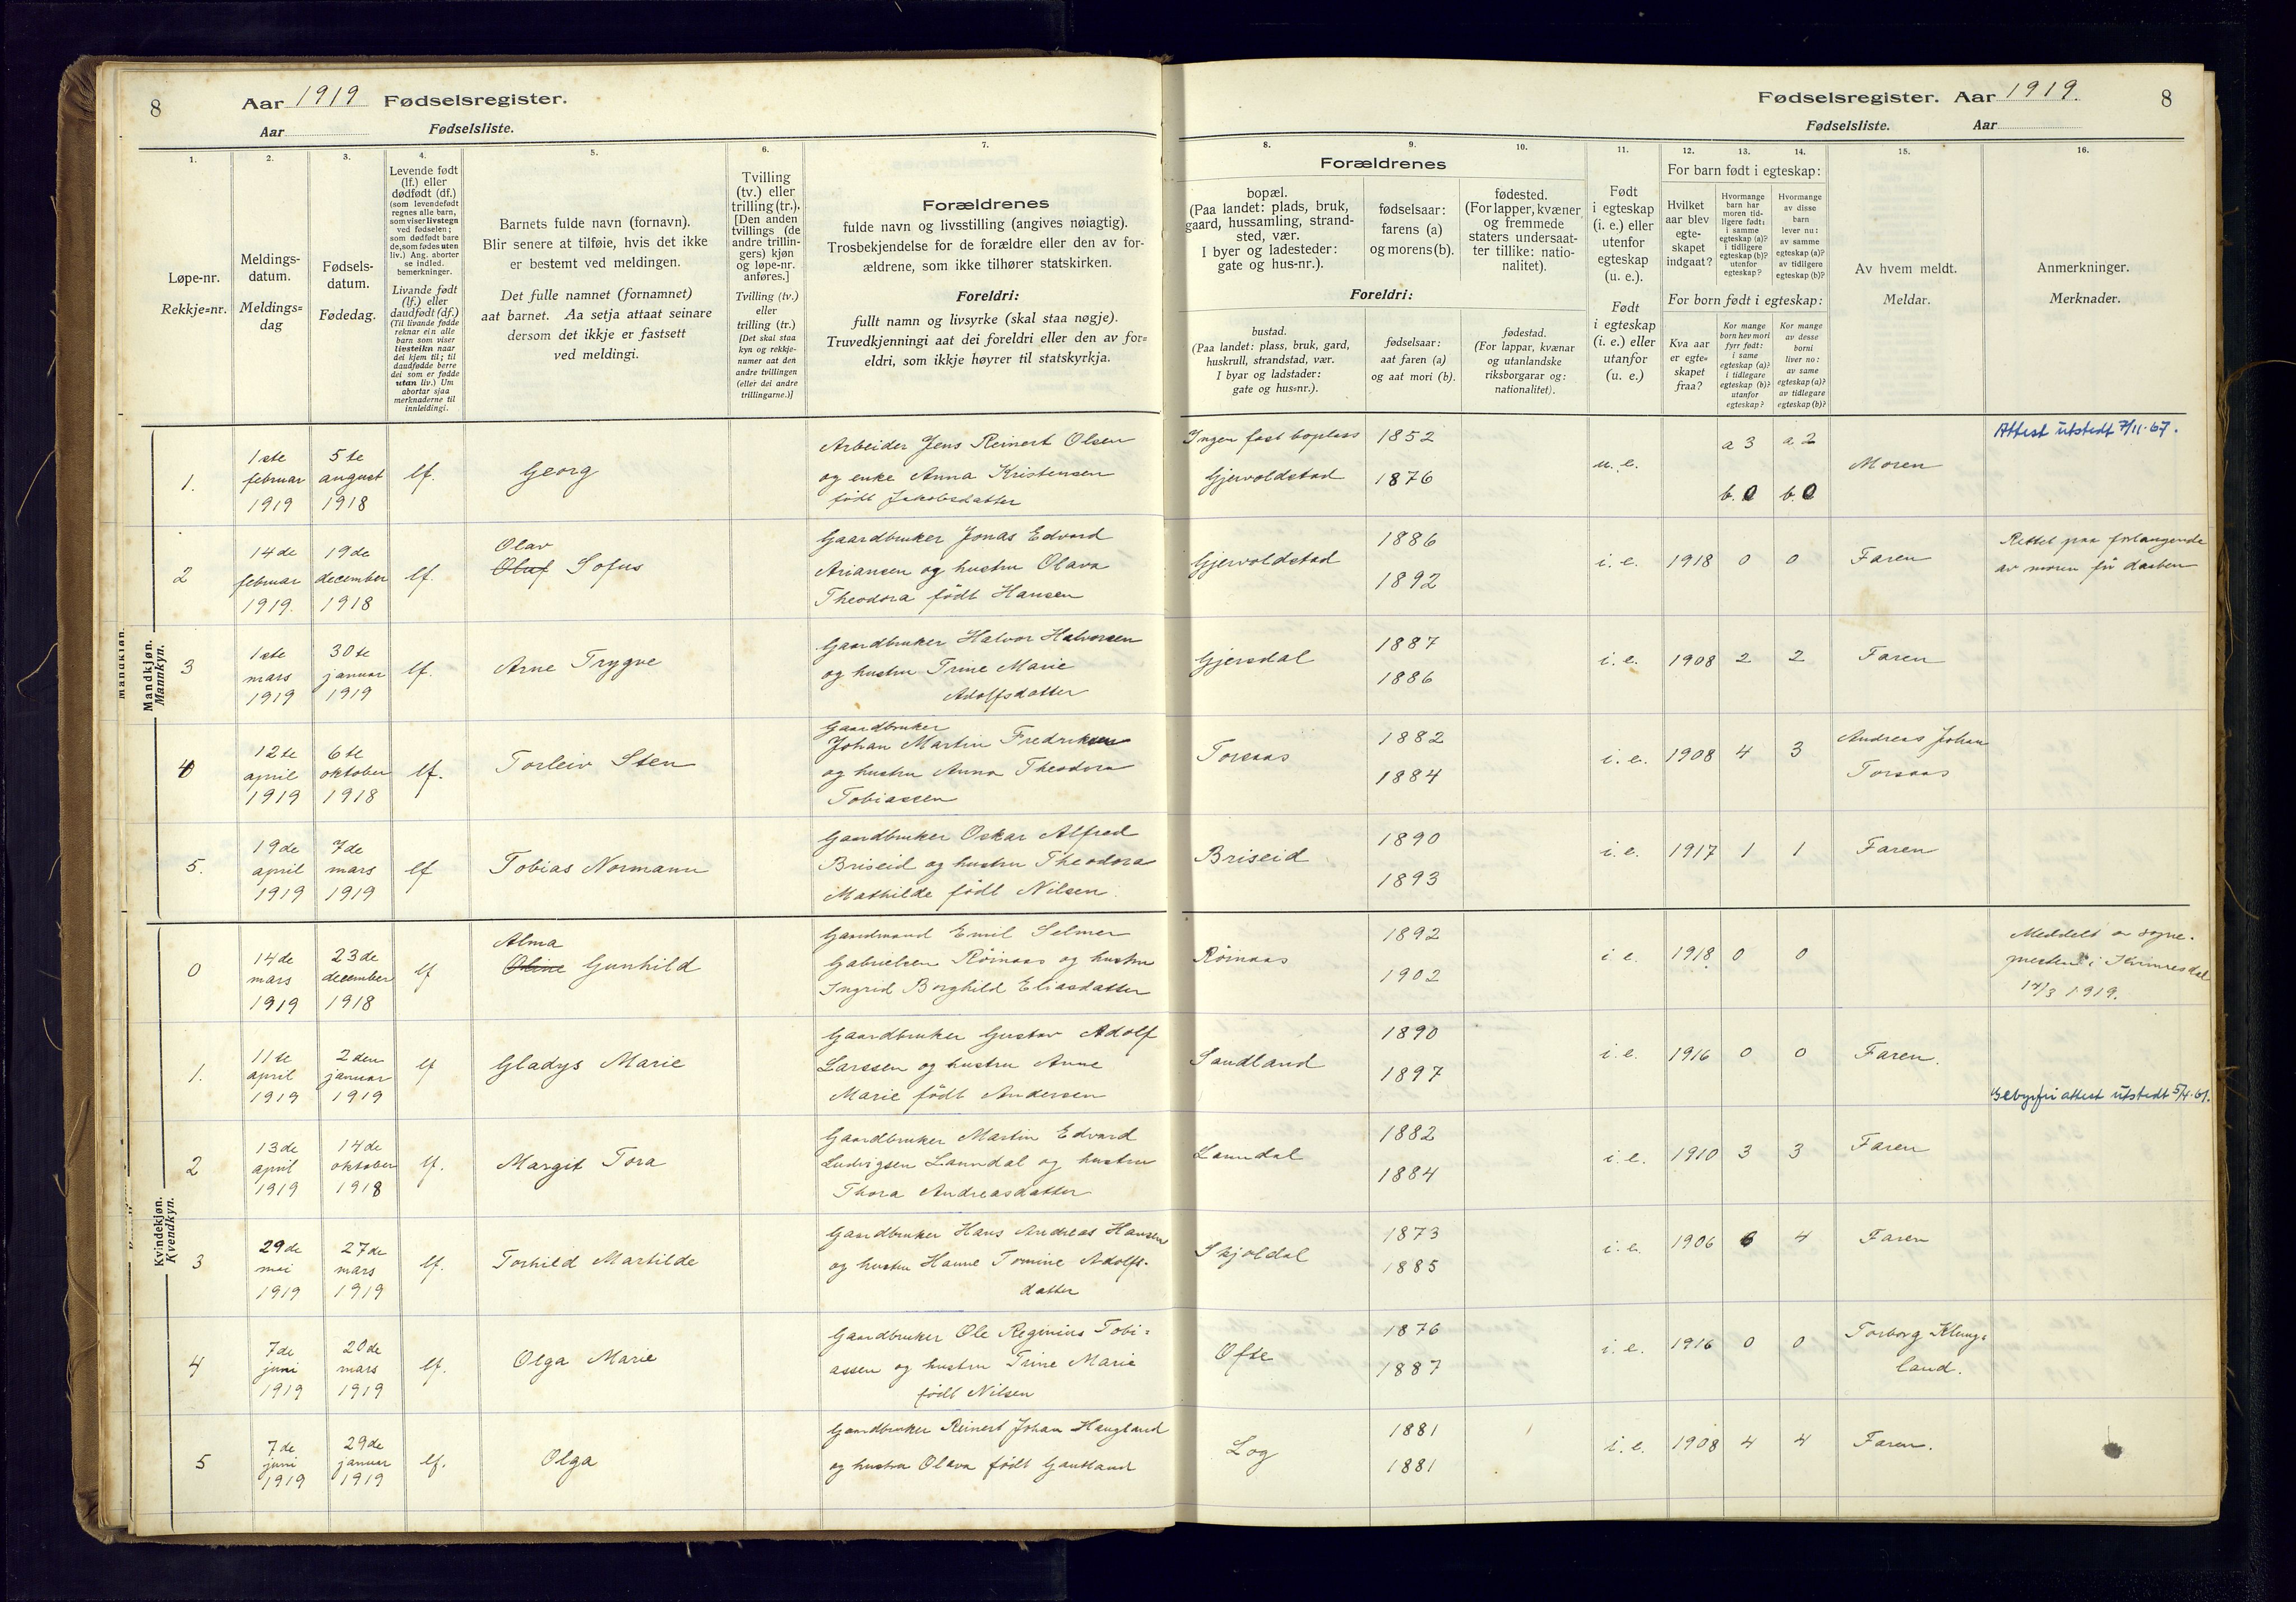 8
Aar 1919 Fødselsregister.
Aar
Fødselsliste.
Fødselsregister. Aar 1919.
8
Fødselsliste.
Aar
1.
Løpe-nr.
Rekkje=nr.
2.
Meldings-
datum.
Meldings=
dag
3.
Fødsels-
datum.
Fødedag.
4.
Levende født
(lf.) eller
dødfødt (df.)
(som levendefødt
regnes alle barn,
som viser livstegn
ved fødselen;
som dødfødt bare
de, som fødes uten
liv.) Ang. aborter
se indled.
bemerkninger.
Livande født
(lf.) eller
daudfødt (df.)
(Til livande fødde
reknar ein alle
barn som viser
livsteikn naar
dei kjem til; til
daudfødde berre
dei som er fødde
utan liv.) Um
abortar sjaa
merknaderne til
innleidingi.
5.
Barnets fulde navn (fornavn).
Blir senere at tilføie, hvis det ikke
er bestemt ved meldingen.
Det fulle namnet (fornamnet)
aat barnet. Aa setja attaat seinare
dersom det ikkje er fastsett
ved meldingi.
6.
Tvilling
(tv.) eller
trilling (tr.).
[Den anden
tvillings (de
andre trillin-
gers) kjøn
og løpe-nr.
anføres.]
Tvilling (tv.)
eller
trilling (tr.)
[Det skal staa
kyn og rekkje-
numer aat den
andre tvillingen
(eller dei andre
trillingarne.)]
7.
Forældrenes
fulde navn og livsstilling (angives nøiagtig).
Trosbekjendelse for de forældre eller den av for-
ældrene, som ikke tilhører statskirken.
Foreldri:
fullt namn og livsyrke (skal staa nøgje).
Truvedkjenningi aat dei foreldri eller den av for=
eldri, som ikkje høyrer til statskyrkja.
8.
9.
10.
Forældrenes
bopæl.
(Paa landet: plads, bruk,
gaard, hussamling, strand-
sted, vær.
I byer og ladesteder:
gate og hus-nr.).
fødselsaar:
farens (a)
og morens (b).
fødested.
(For lapper, kvæner
og fremmede
staters undersaat-
ter tillike: natio-
nalitet).
Foreldri:
bustad.
(Paa landet: plass, bruk, gard,
huskrull, strandstad, vær.
I byar og ladstader:
gate og hus=nr.).
fødselsaar:
aat faren (a)
og aat mori (b).
fødestad.
(For lappar, kvænar
og utanlandske
riksborgarar og:
nationalitet).
11.
Født
i egteskap
(i. e.) eller
utenfor
egteskap
(u. e.).
Født
i egteskap
(i. e.) eller
utanfor
(u. e.)
12.
13.
14.
For barn født i egteskap:
Hvilket
aar blev
egte-
skapet
indgaat?
Hvormange
barn har
moren tid-
ligere født:
i samme
egteskap (a)?
i tidligere
egteskap (b)?
utenfor
egteskap?
Hvormange
av disse
barn
lever nu:
av samme
egteskap (a)?
av tidligere
egteskap (b)?
For born født i egteskap:
Kva aar
er egte=
skapet
fraa?
Kor mange
born hev mori
fyrr født:
i same
egteskap (a)?
i tidlegare
egteskap (b)?
utanfor
egteskap?
Kor mange
av desse
borni
liver no:
av same
egteskap (a)?
av tidlegare
egteskap (b)?
15.
Av hvem meldt.
Meldar.
16.
Anmerkninger.
Merknader.
Mandkjøn.
Mannkyn.
1.
1ste
februar
1919
5te
august
1918
lf.
Georg
Arbeider Jens Reinert Olsen
og enke Anna Kristensen
født Jakobsdatter
Ingen fast boplass
Gjervoldstad
1852
1876
u. e.
a 3
b. 0
a 2
b. 0
Moren
Attest utstedt 7/11-67.
2
14de
februar
1919.
19de
december
1918
lf.
Olav
Oluf Sofus
Gaardbruker Jonas Edvard
Ariansen og hustru Olava
Theodora født Hansen
Gjervoldstad
1886
1892
i. e.
1918
0
0
Faren
Rettet paa forlangende
av moren før daaben
3
1ste
mars
1919
30te
januar
1919
lf.
Arne Trygve
Gaardbruker Halvor Halvorsen
og hustru Trine Marie
Adolfsdatter
Gjersdal
1887
1886
i. e.
1908
2
2
Faren
4
12te
april
1919
6te
oktober
1918
lf.
Torleiv Sten
Gaardbruker
Johan Martin Fredriksen
og hustru Anna Theodora
Tobiassen
Torsaas
1882
1884
i. e.
1908
4
3
Andreas Johan
Torsaas
5.
19de
april
1919
7de
mars
1919
lf
Tobias Normann
Gaardbruker Oskar Alfred
Briseid og hustru Theodora
Mathilde født Nilsen.
Briseid
1890
1893
i. e.
1917
1
1
Faren
Kvindekjøn.
Kvendkyn.
0
14de
mars
1919
23de
december
1918
lf
Alma
Oline Gunhild
Gaardmand Emil Selmer
Gabrielsen Røinaas og hustru
Ingrid Borghild Eliasdatter
Røinaas
1892
1902
i e.
1918
0
0
Meddelt av sogne-
presten i Kvinesdal
14/3 1919.
1.
11te
april
1919
2den
januar
1919
lf
Gladys Marie
Gaardbruker Gustav Adolf
Larssen og hustru Anne
Marie født Andersen
Sandland
1890
1897
i. e.
1916
0
0
Faren.
Gebyrfri attest utstedt 5/4-61.
2
13de
april
1919
14de
oktober
1918
lf.
Margit Tora
Gaardbruker Martin Edvard
Ludvigsen Lanndal og hustru
Thora Andreasdatter
Lanndal
1882
1884
i. e.
1910
3
3
Faren
3
29de
mai
1919
27de
mars
1919
lf.
Torhild Martilde
Gaardbruker Hans Andreas Hansen
og hustru Hanne Tomine Adolfs-
datter
Skjoldal
1873
1885
i. e.
1906
6
4
Faren
4
7de
juni
1919
20de
mars
1919
lf.
Olga Marie
Gaardbruker Ole Reginius Tobi=
assen og hustru Trine Marie
født Nilsen
Ofte
1876
1887
i. e.
1916
0
0
Torborg Klung=
land.
5
7de
juni
1919
29de
januar
1919
lf.
Olga
Gaardbruker Reinert Johan Haugland
og hustru Olava født Gautland
Log
1881
1881
i. e.
1908
4
4
Faren.